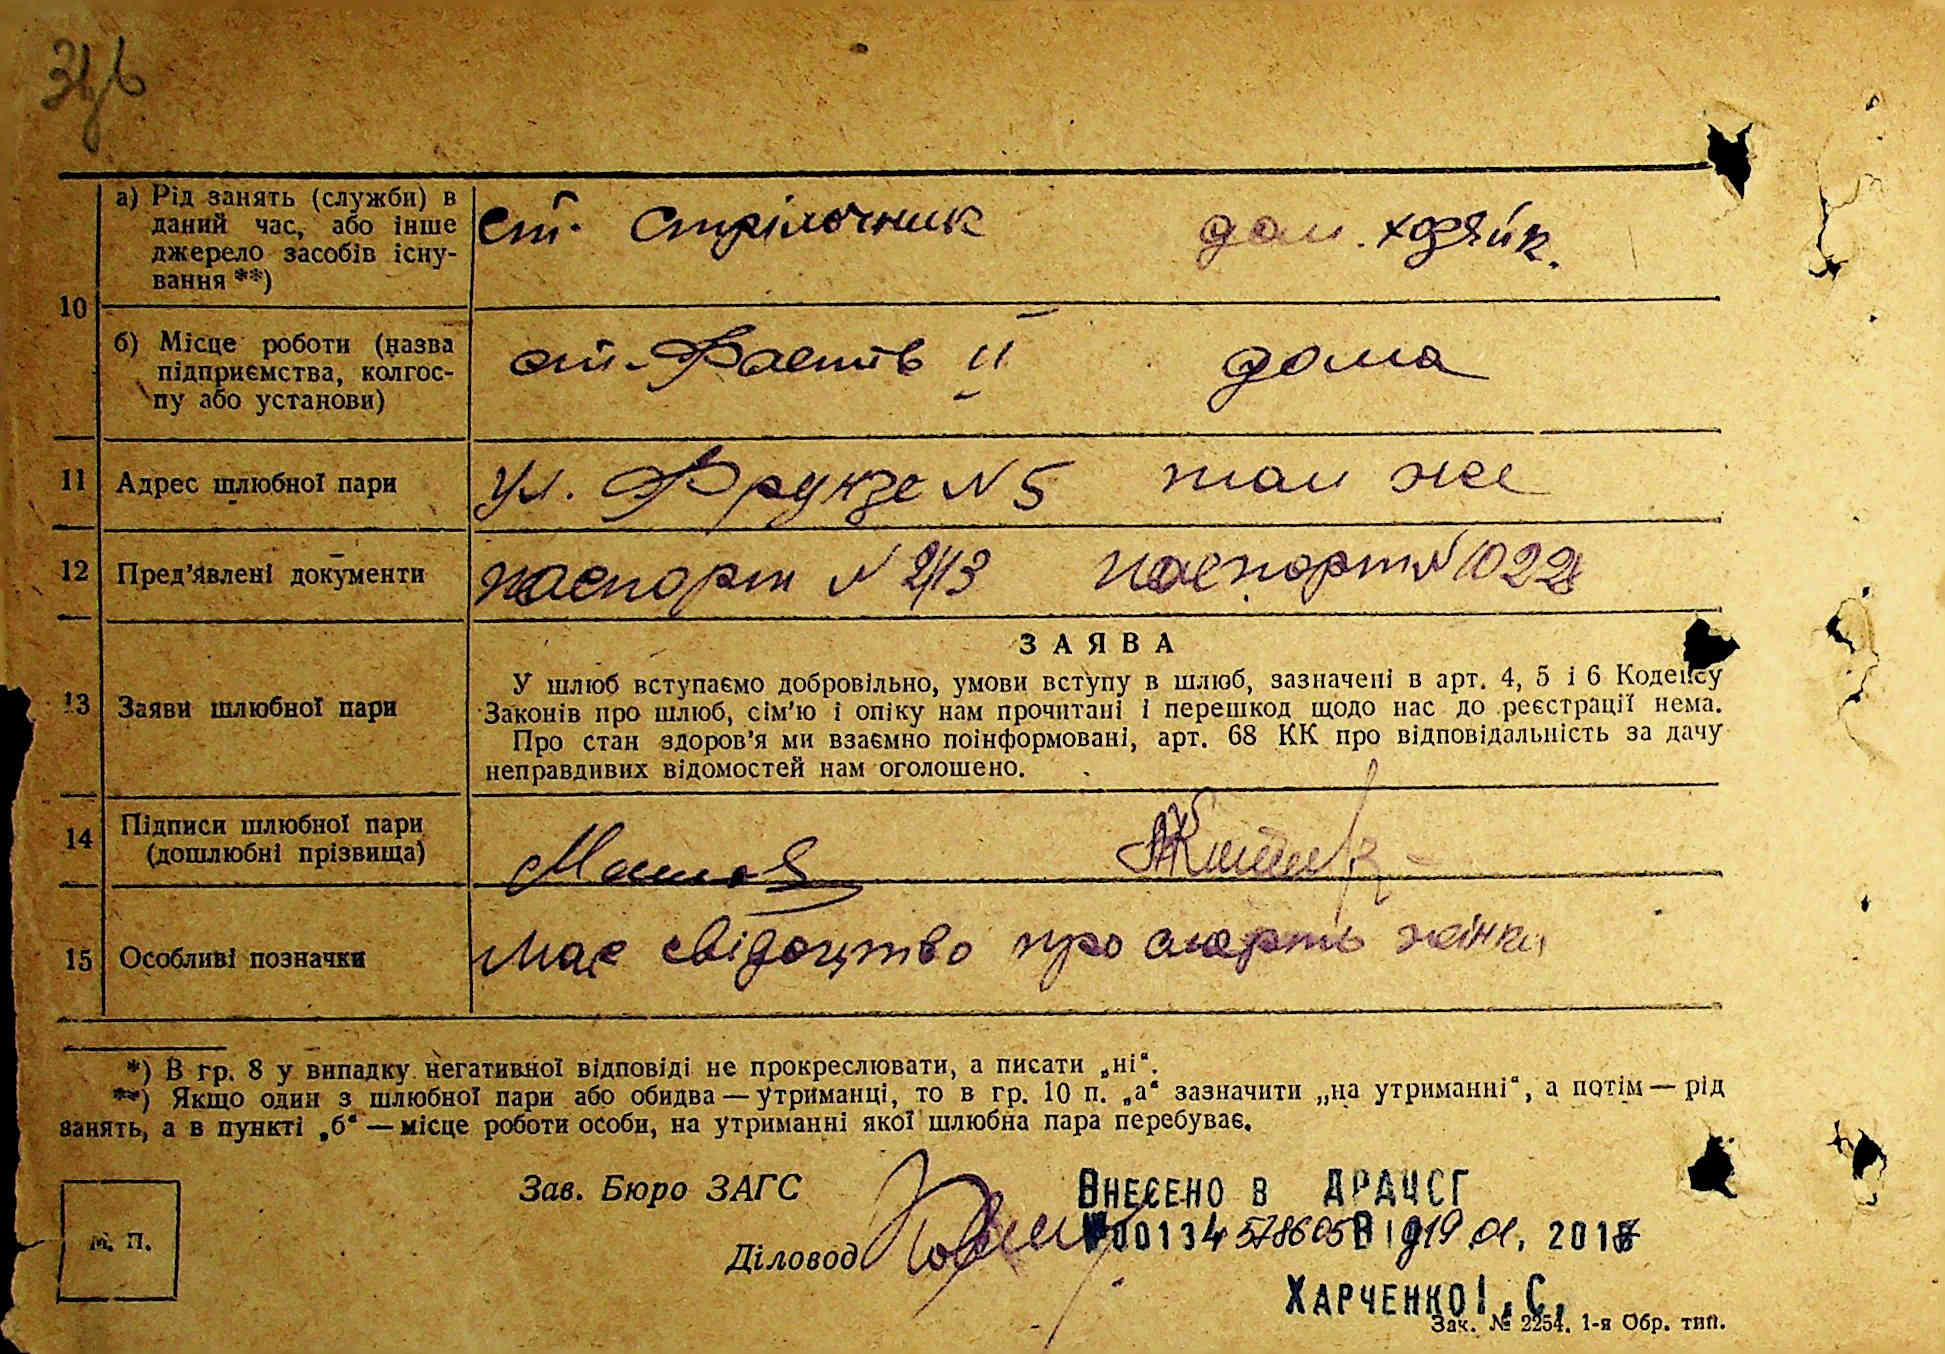 а) Рід занять (служби) в
даний час, або інше
джерело засобів існу-
вання **)
ст. стрілочник дом. хозяйк.
10
б) Місце роботи (назва
підприємства, колгос-
пу або установи)
ст. Фастів II дома
11 Адрес шлюбної пари ул. Фрунзе N 5 там же
12 Пред'явлені документи паспорт N паспорт N
ЗАЯВА
13 Заяви шлюбної пари
У шлюб вступаємо добровільно, умови вступу в шлюб, зазначені в арт. 4, 5 і 6 Кодексу
Законів про шлюб, сім'ю і опіку нам прочитані і перешкод щодо нас до реєстрації нема.
Про стан здоров'я ми взаємно поінформовані, арт. 68 КК про відповідальність за дачу
неправдивих відомостей нам оголошено.
14 Підписи шлюбної пари
(дошлюбні прізвища)
15 Особливі позначки Має свідоцтво про смерть жінки
*) В гр. 8 у випадку негативної відповіді не прокреслювати, а писати „ні“.
**) Якщо один з шлюбної пари або обидва — утриманці, то в гр. 10 п. „а“ зазначити „на утриманні“, а потім — рід
занять, а в пункті „б“ — місце роботи особи, на утриманні якої шлюбна пара перебуває.
Зав. Бюро ЗАГС
ВНЕСЕНО В ДРАЦСГ
Діловод
№00134578605 ВІД 19.01.2018
М. П.
ХАРЧЕНКО І. С.
Зак. № 2254. 1-я Обр. тип.